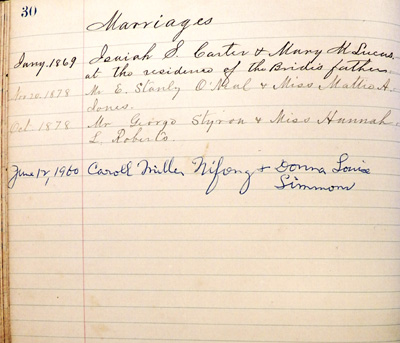 30
Marriages
Jany. 1869 Isaiah S. Carter & Mary M Lucas.
at the residence of the Bride's fathers.
Nov 20, 1878 Mr E. Stanly O'Neal & Miss Mattie A.
Jones.
Oct. 1878 Mr. George Styron & Miss Hannah
L Roberts.
June 12, 1960 Caroll Miller Nifong & Donna Louise
Simmons